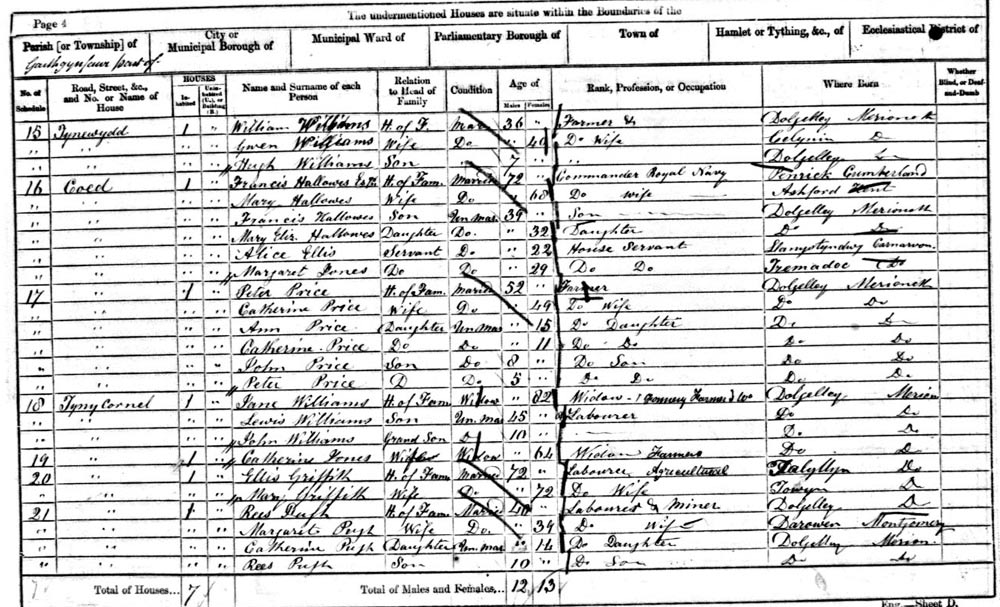 Page 4
The undermentioned Houses are situate within the Boundaries of the
Parish [or Township] of
City or Municipal Borough of
Municipal Ward of
Parliamentary Borough of
Town of
Hamlet or Tything, &c., of
Ecclesiastical District of
No. of Schedule
Road, Street, &c., and No. or Name of House
HOUSES
In-habited
Unin-habited (U.), or Building (B.)
Name and Surname of each Person
Relation to Head of Family
Condition
Age of
Males
Females
Rank, Profession, or Occupation
Where Born
Whether Blind, or Deaf-and-Dumb
15 Tynewydd 1 William Williams H. of F. Mar 36 " Farmer & Dolgelley Merioneth
" " Gwen Williams Wife Do " 40 Do Wife Celynin D
" " Hugh Williams Son " 7 " " Dolgelley Do
16 Coed 1 Francis Hallowes H. of Fam. Married 72 Commander Royal Navy Cumberland
" " Mary Hallowes Wife Do " 68 Do wife Ashford Kent
" " Francis Hallowes Son Un mar 39 " Son Dolgelley Merioneth
" " Mary Eliz. Hallowes Daughter Do. " 32 Daughter Do Do
" " Alice Ellis Servant Do " 22 House Servant Carnarvon
" " Margaret Jones Do Do " 29 Do Do Tremadoc Do
17 " 1 Peter Price H. of Fam. Married 52 Farmer Dolgelley Merioneth
" " Catherine Price Wife Do " 49 Do Wife Do Do
" " Ann Price Daughter Un Mar " 15 Do Daughter Do Do
" " Catherine Price Do Do " 11 Do Do Do Do
" " John Price Son Do 8 " Do Son Do Do
" " Peter Price D Do 5 " Do Do Do Do
18 Tyny Cornel 1 Jane Williams H. of Fam Widow " 82 Widow Dolgelley Merion
" " Lewis Williams Son Un Mar 45 " Labourer Do Do
" " John Williams Grand Son D 10 " Do Do
19 " 1 Catherine Jones Widow " 64 Widow Farmer Do Do
20 " 1 Ellis Griffith H. of Fam Married 72 Labourer Agricultural Talyllyn Do
" " Mary Griffith Wife Do " 72 Do Wife Towyn Do
21 " 1 Rees Pugh H. of Fam Married 40 " Labourer & Miner Dolgelley Do
" " Margaret Pugh Wife Do. " 39 Do Wife Darowen Montgomery
" " Catherine Pugh Daughter Un mar " 14 Do Daughter Dolgelley Merion
" " Rees Pugh Son 10 " Do Son Do Do
Total of Houses... 7
Total of Males and Females... 12 13
Eng.—Sheet D.